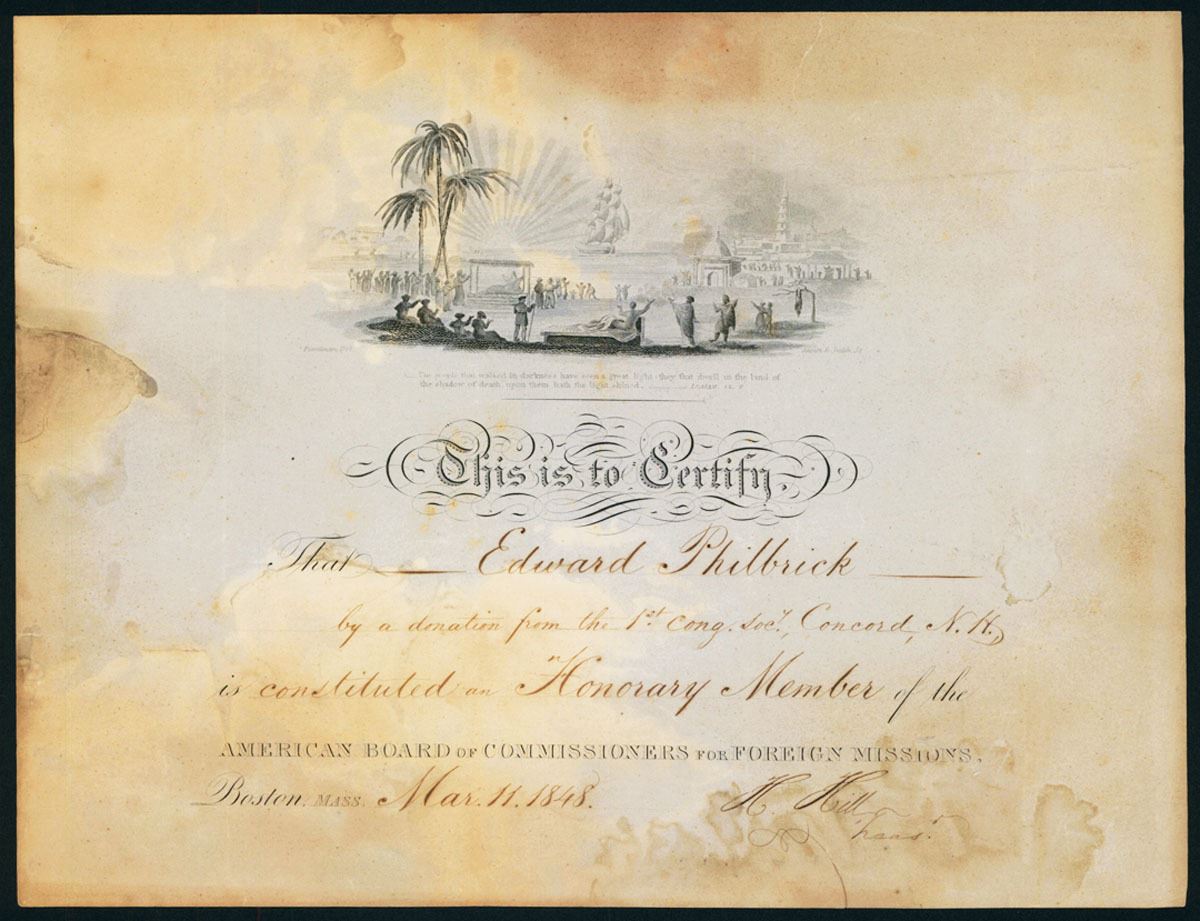 The people that walked in darkness have seen a great light: they that dwell in the land of
the shadow of death, upon them hath the light shined. ISAIAH. IX. 2
This is to Certify.
That Edward Philbrick
by a donation from the 1st Cong. Socy., Concord, N. H.,
is constituted an Honorary Member of the
AMERICAN BOARD OF COMMISSIONERS FOR FOREIGN MISSIONS.
Boston, MASS. Mar. 11. 1848. H. Hill
Treasr.